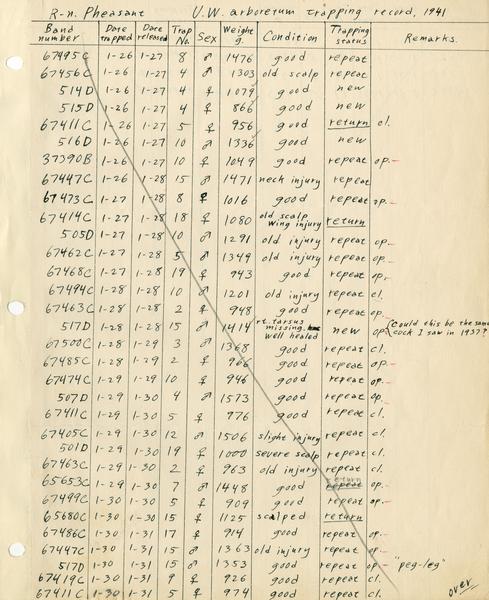 R-n. Pheasant U.W. arboretum trapping record, 1941
Band number Date trapped Date released Trap No. Sex Weight g. Condition Trapping status Remarks.
67495C 1-26 1-27 8 ♂ 1476 good repeat
67456C 1-26 1-27 4 ♂ 1303 old scalp repeat
514D 1-26 1-27 4 ♀ 1079 good new
515D 1-26 1-27 4 ♀ 866 good new
67411C 1-26 1-27 5 ♀ 956 good return cl.
516D 1-26 1-27 10 ♂ 1336 good new
37390B 1-26 1-27 10 ♀ 1049 good repeat op.
67447C 1-26 1-28 15 ♂ 1471 neck injury repeat
67473C 1-27 1-28 8 ♀ 1016 good repeat op.
67414C 1-27 1-28 18 ♀ 1080 old scalp wing injury return
505D 1-27 1-28 10 ♂ 1291 old injury repeat op.
67462C 1-27 1-28 5 ♂ 1349 old injury repeat op.
67468C 1-27 1-28 19 ♀ 943 good repeat op.
67494C 1-28 1-28 10 ♂ 1201 old injury repeat cl.
67463C 1-28 1-28 2 ♀ 948 good repeat op.
517D 1-28 1-28 15 ♂ 1414 rt. tarsus missing, well healed new op. (Could this be the same cock I saw in 1937?
67500C 1-28 1-29 3 ♂ 1368 good repeat cl.
67485C 1-28 1-29 2 ♀ 966 good repeat op.
67474C 1-29 1-29 10 ♀ 946 good repeat op.
507D 1-29 1-30 4 ♂ 1573 good repeat op.
67411C 1-29 1-30 5 ♀ 976 good repeat cl.
67405C 1-29 1-30 12 ♂ 1506 slight injury repeat cl.
501D 1-29 1-30 19 ♀ 1000 severe scalp repeat cl.
67463C 1-29 1-30 2 ♀ 963 old injury repeat cl.
65653C 1-29 1-30 7 ♂ 1448 good return repeat op.
67499C 1-29 1-30 5 ♀ 909 good repeat op.
65680C 1-30 1-30 15 ♀ 1125 scalped return
67486C 1-30 1-31 17 ♀ 914 good repeat op.
67447C 1-30 1-31 15 ♂ 1363 old injury repeat op
517D 1-30 1-31 15 ♂ 1353 good repeat op. "peg-leg"
67419C 1-30 1-31 9 ♀ 926 good repeat cl.
67411C 1-30 1-31 5 ♀ 974 good repeat cl.
over